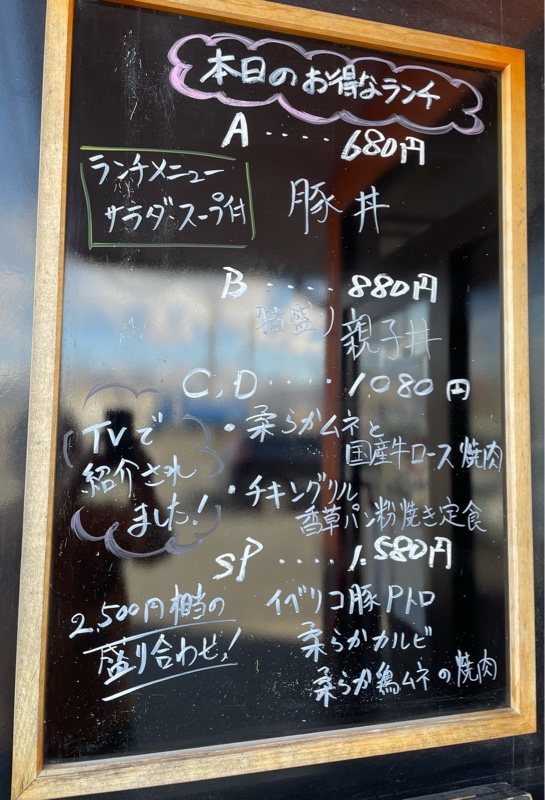 本日のお得なランチ
A ···· 680円
ランチメニュー
サラダ・スープ付
豚丼
B ···· 880円
親子丼
C,D ···· 1.080円
TVで
紹介され
ました!
・柔らかムネと
国産牛ロース焼肉
・チキングリル
香草パン粉焼き定食
SP ···· 1.580円
2,500円相当の
盛り合わせ!
イベリコ豚Pトロ
柔らかカルビ
柔らか鶏ムネの焼肉